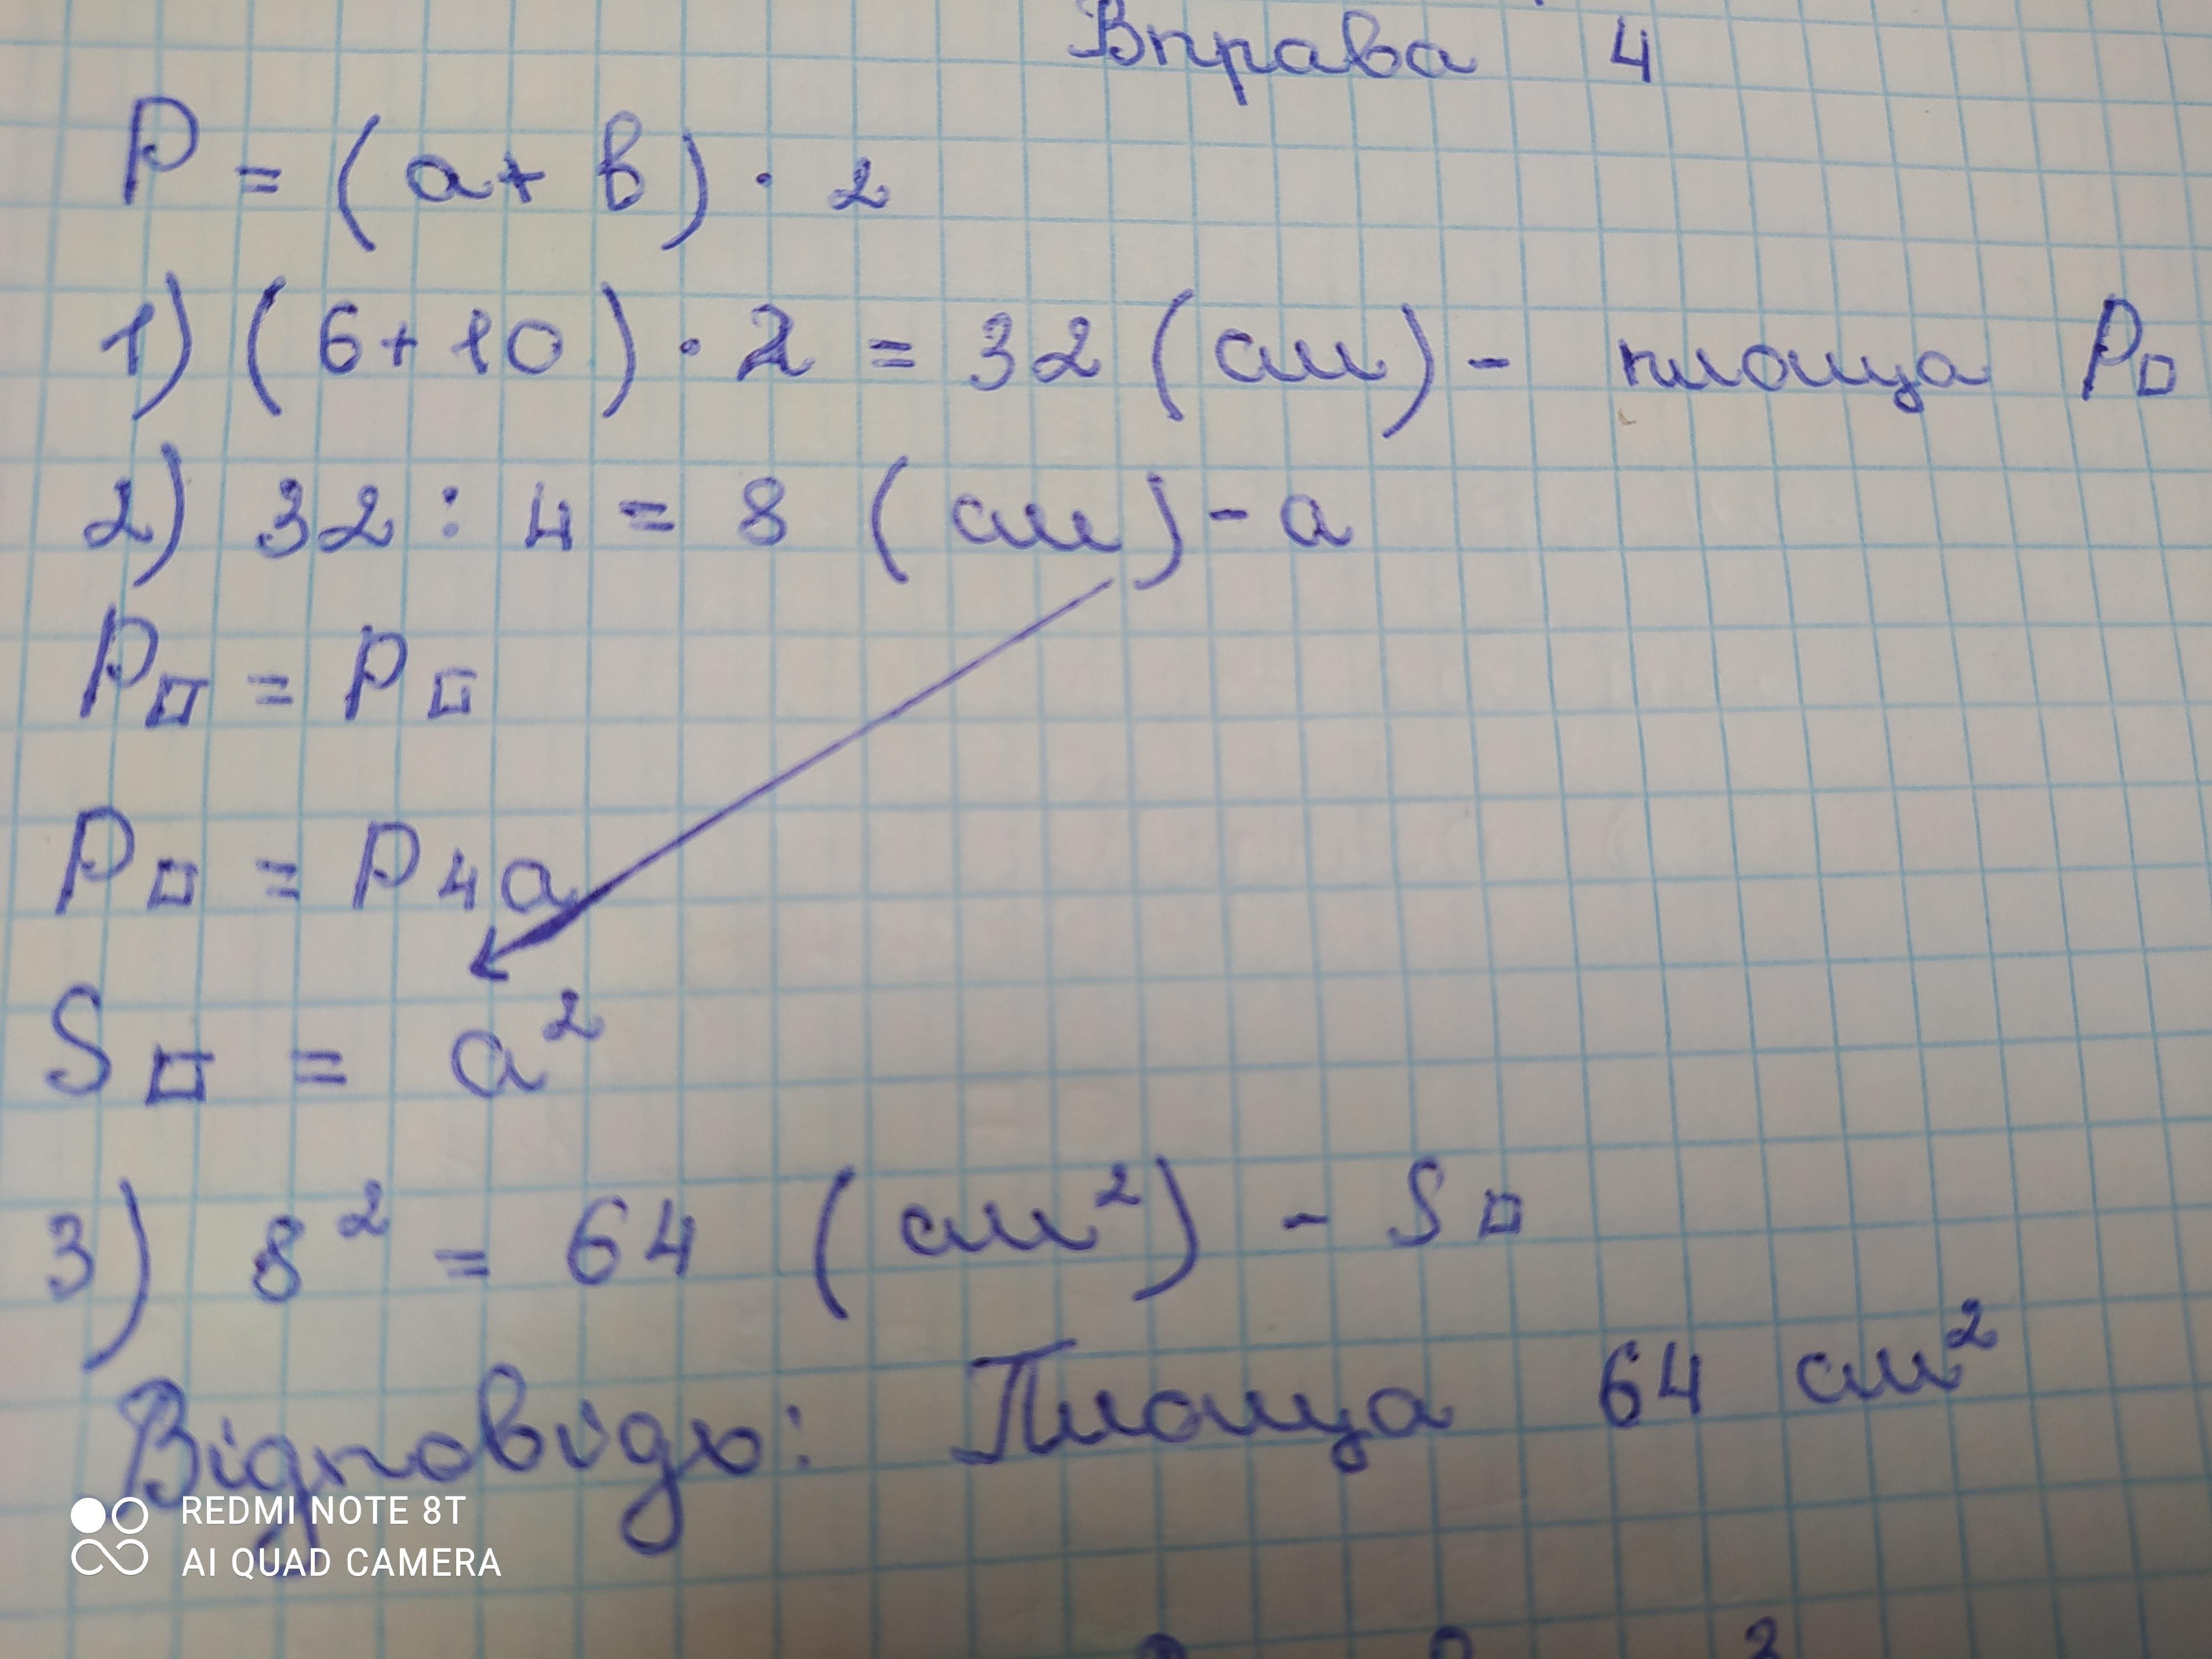 Вправа 4
P = (a + b) · 2
1) (6 + 10) · 2 = 32 (см) - площа P□
2) 32 : 4 = 8 (см) - a
P□ = P□
P□ = P4a
S□ = a²
3) 8² = 64 (см²) - S□
Відповідь: Площа 64 см²
REDMI NOTE 8T
AI QUAD CAMERA